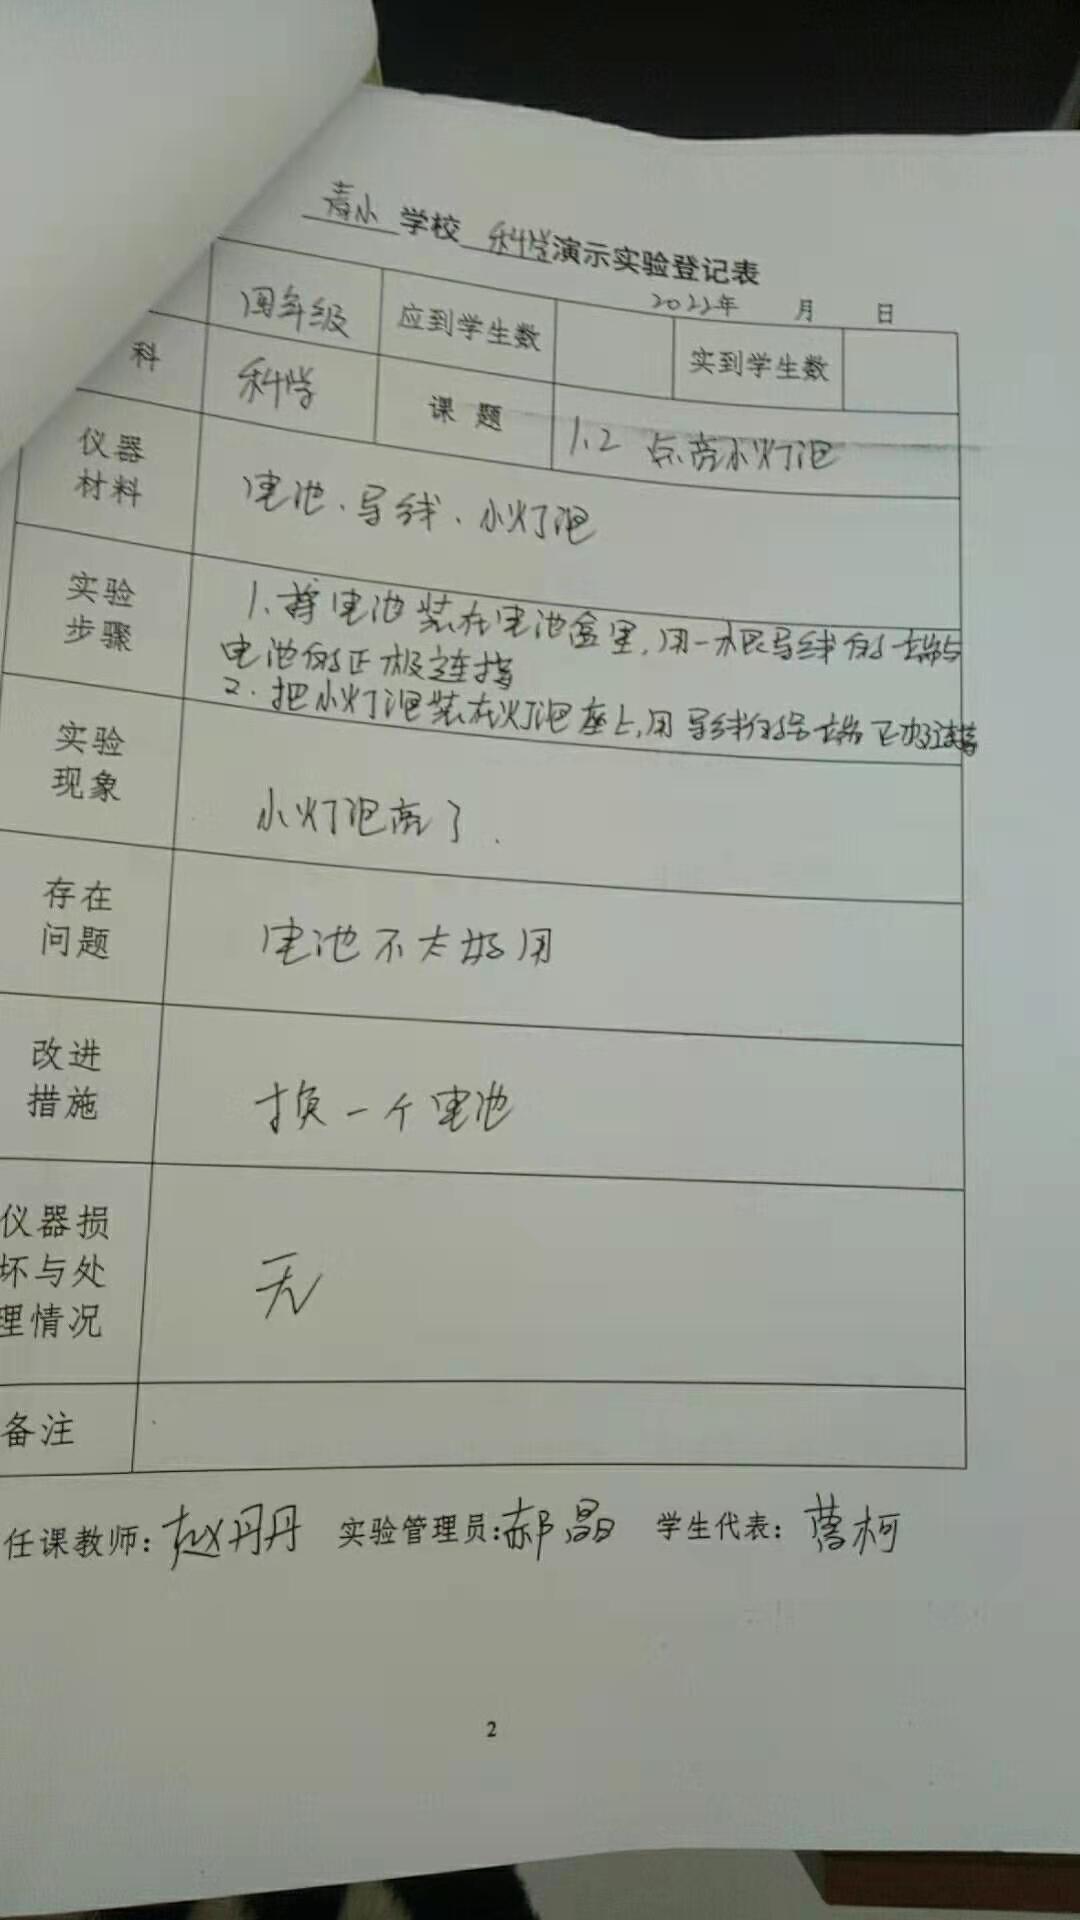 学校 科学演示实验登记表
2022年 月 日
四年级 应到学生数 实到学生数
科 科学 课题 1.2 点亮小灯泡
仪器
材料
电池、导线、小灯泡
实验
步骤
1.将电池装在电池盒里,用一根导线的一端与
电池的正极连接
2.把小灯泡装在灯泡座上,用导线的另一端
实验
现象
小灯泡亮了.
存在
问题
电池不太好用
改进
措施
换一个电池
仪器损
坏与处
理情况
无
备注
任课教师:赵丹丹 实验管理员:郝晶 学生代表:曹柯
2